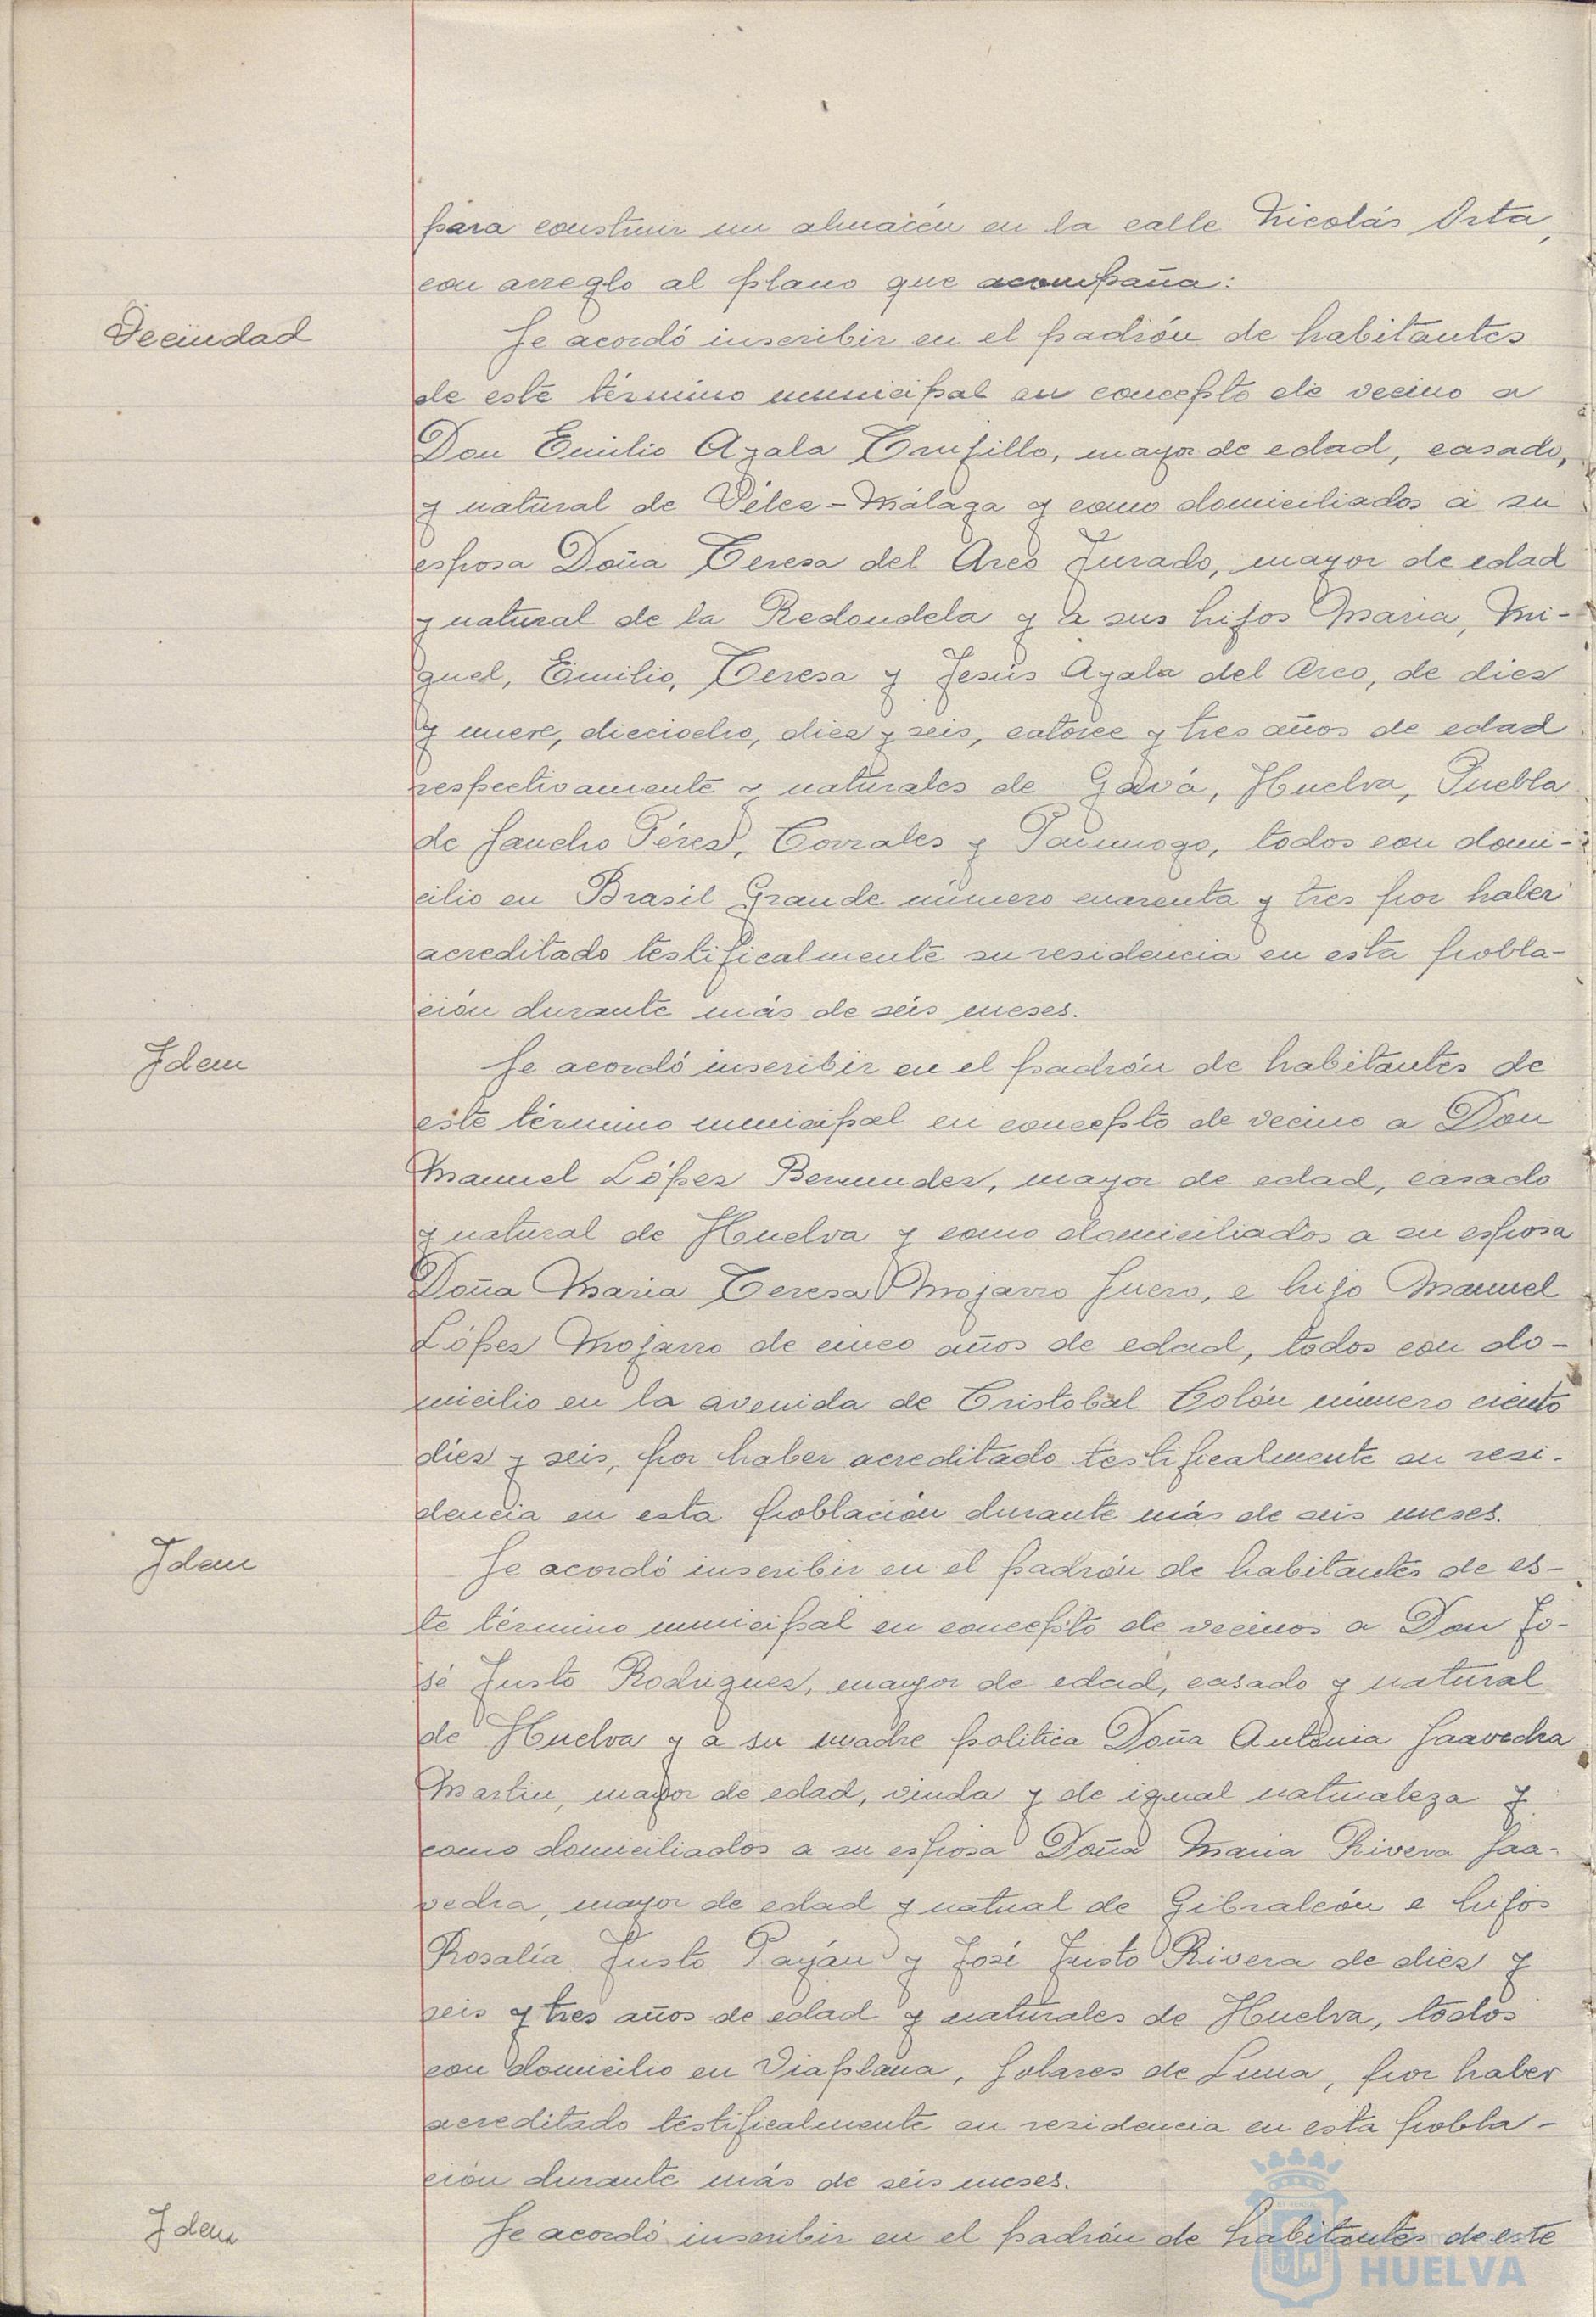 para construir un almacén en la calle Nicolás Orta,
con arreglo al plano que acompaña:
Vecindad
Se acordó inscribir en el padrón de habitantes
de este término municipal en concepto de vecino a
Don Emilio Ayala Trujillo, mayor de edad, casado,
y natural de Vélez-Málaga y como domiciliados a su
esposa Doña Teresa del Arco Jurado, mayor de edad
y natural de la Redondela y a sus hijos Maria, Mi-
guel, Emilio, Teresa y Jesús Ayala del Arco, de diez
y nueve, dieciocho, diez y seis, catorce y tres años de edad
respectivamente y naturales de Gavá, Huelva, Puebla
de Sancho Pérez, Corrales y Paimogo, todos con domi-
cilio en Brasil Grande número cuarenta y tres por haber
acreditado testificalmente su residencia en esta pobla-
ción durante más de seis meses.
Idem
Se acordó inscribir en el padrón de habitantes de
este término municipal en concepto de vecino a Don
Manuel López Bermudez, mayor de edad, casado
y natural de Huelva y como domiciliados a su esposa
Doña Maria Teresa Mojarro Suero, e hijo Manuel
López Mojarro de cinco años de edad, todos con do-
micilio en la avenida de Cristobal Colón número ciento
diez y seis, por haber acreditado testificalmente su resi-
dencia en esta población durante más de seis meses.
Idem
Se acordó inscribir en el padrón de habitantes de es-
te término municipal en concepto de vecinos a Don Jo-
sé Justo Rodriguez, mayor de edad, casado y natural
de Huelva y a su madre politica Doña Antonia Saavedra
Martin, mayor de edad, viuda y de igual naturaleza y
como domiciliados a su esposa Doña Maria Rivera Saa-
vedra, mayor de edad y natual de Gibraleón e hijos
Rosalía Justo Payán y José Justo Rivera de diez y
seis y tres años de edad y naturales de Huelva, todos
con domicilio en Viaplana, Solares de Luna, por haber
acreditado testificalmente su residencia en esta pobla-
ción durante más de seis meses.
Idem
Se acordó inscribir en el padrón de habitantes de este
HUELVA